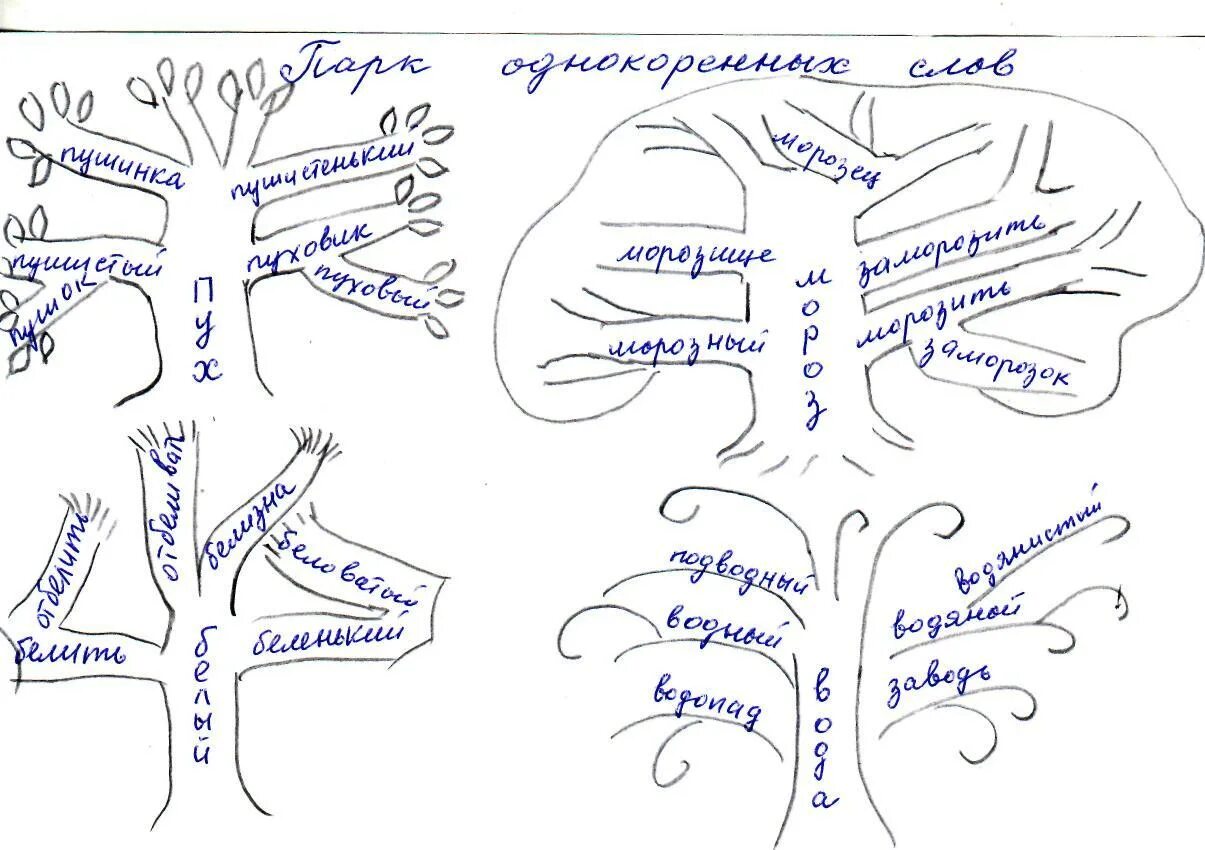 Парк однокоренных слов
пушинка
пушистенький
пушистый
пушок
пуховик
пуховый
пух
морозец
морозище
морозный
заморозить
морозить
заморозок
мороз
отбелить
отбеливат
белизна
беловатый
белить
беленький
белый
подводный
водный
водопад
водянистый
водяной
заводь
вода